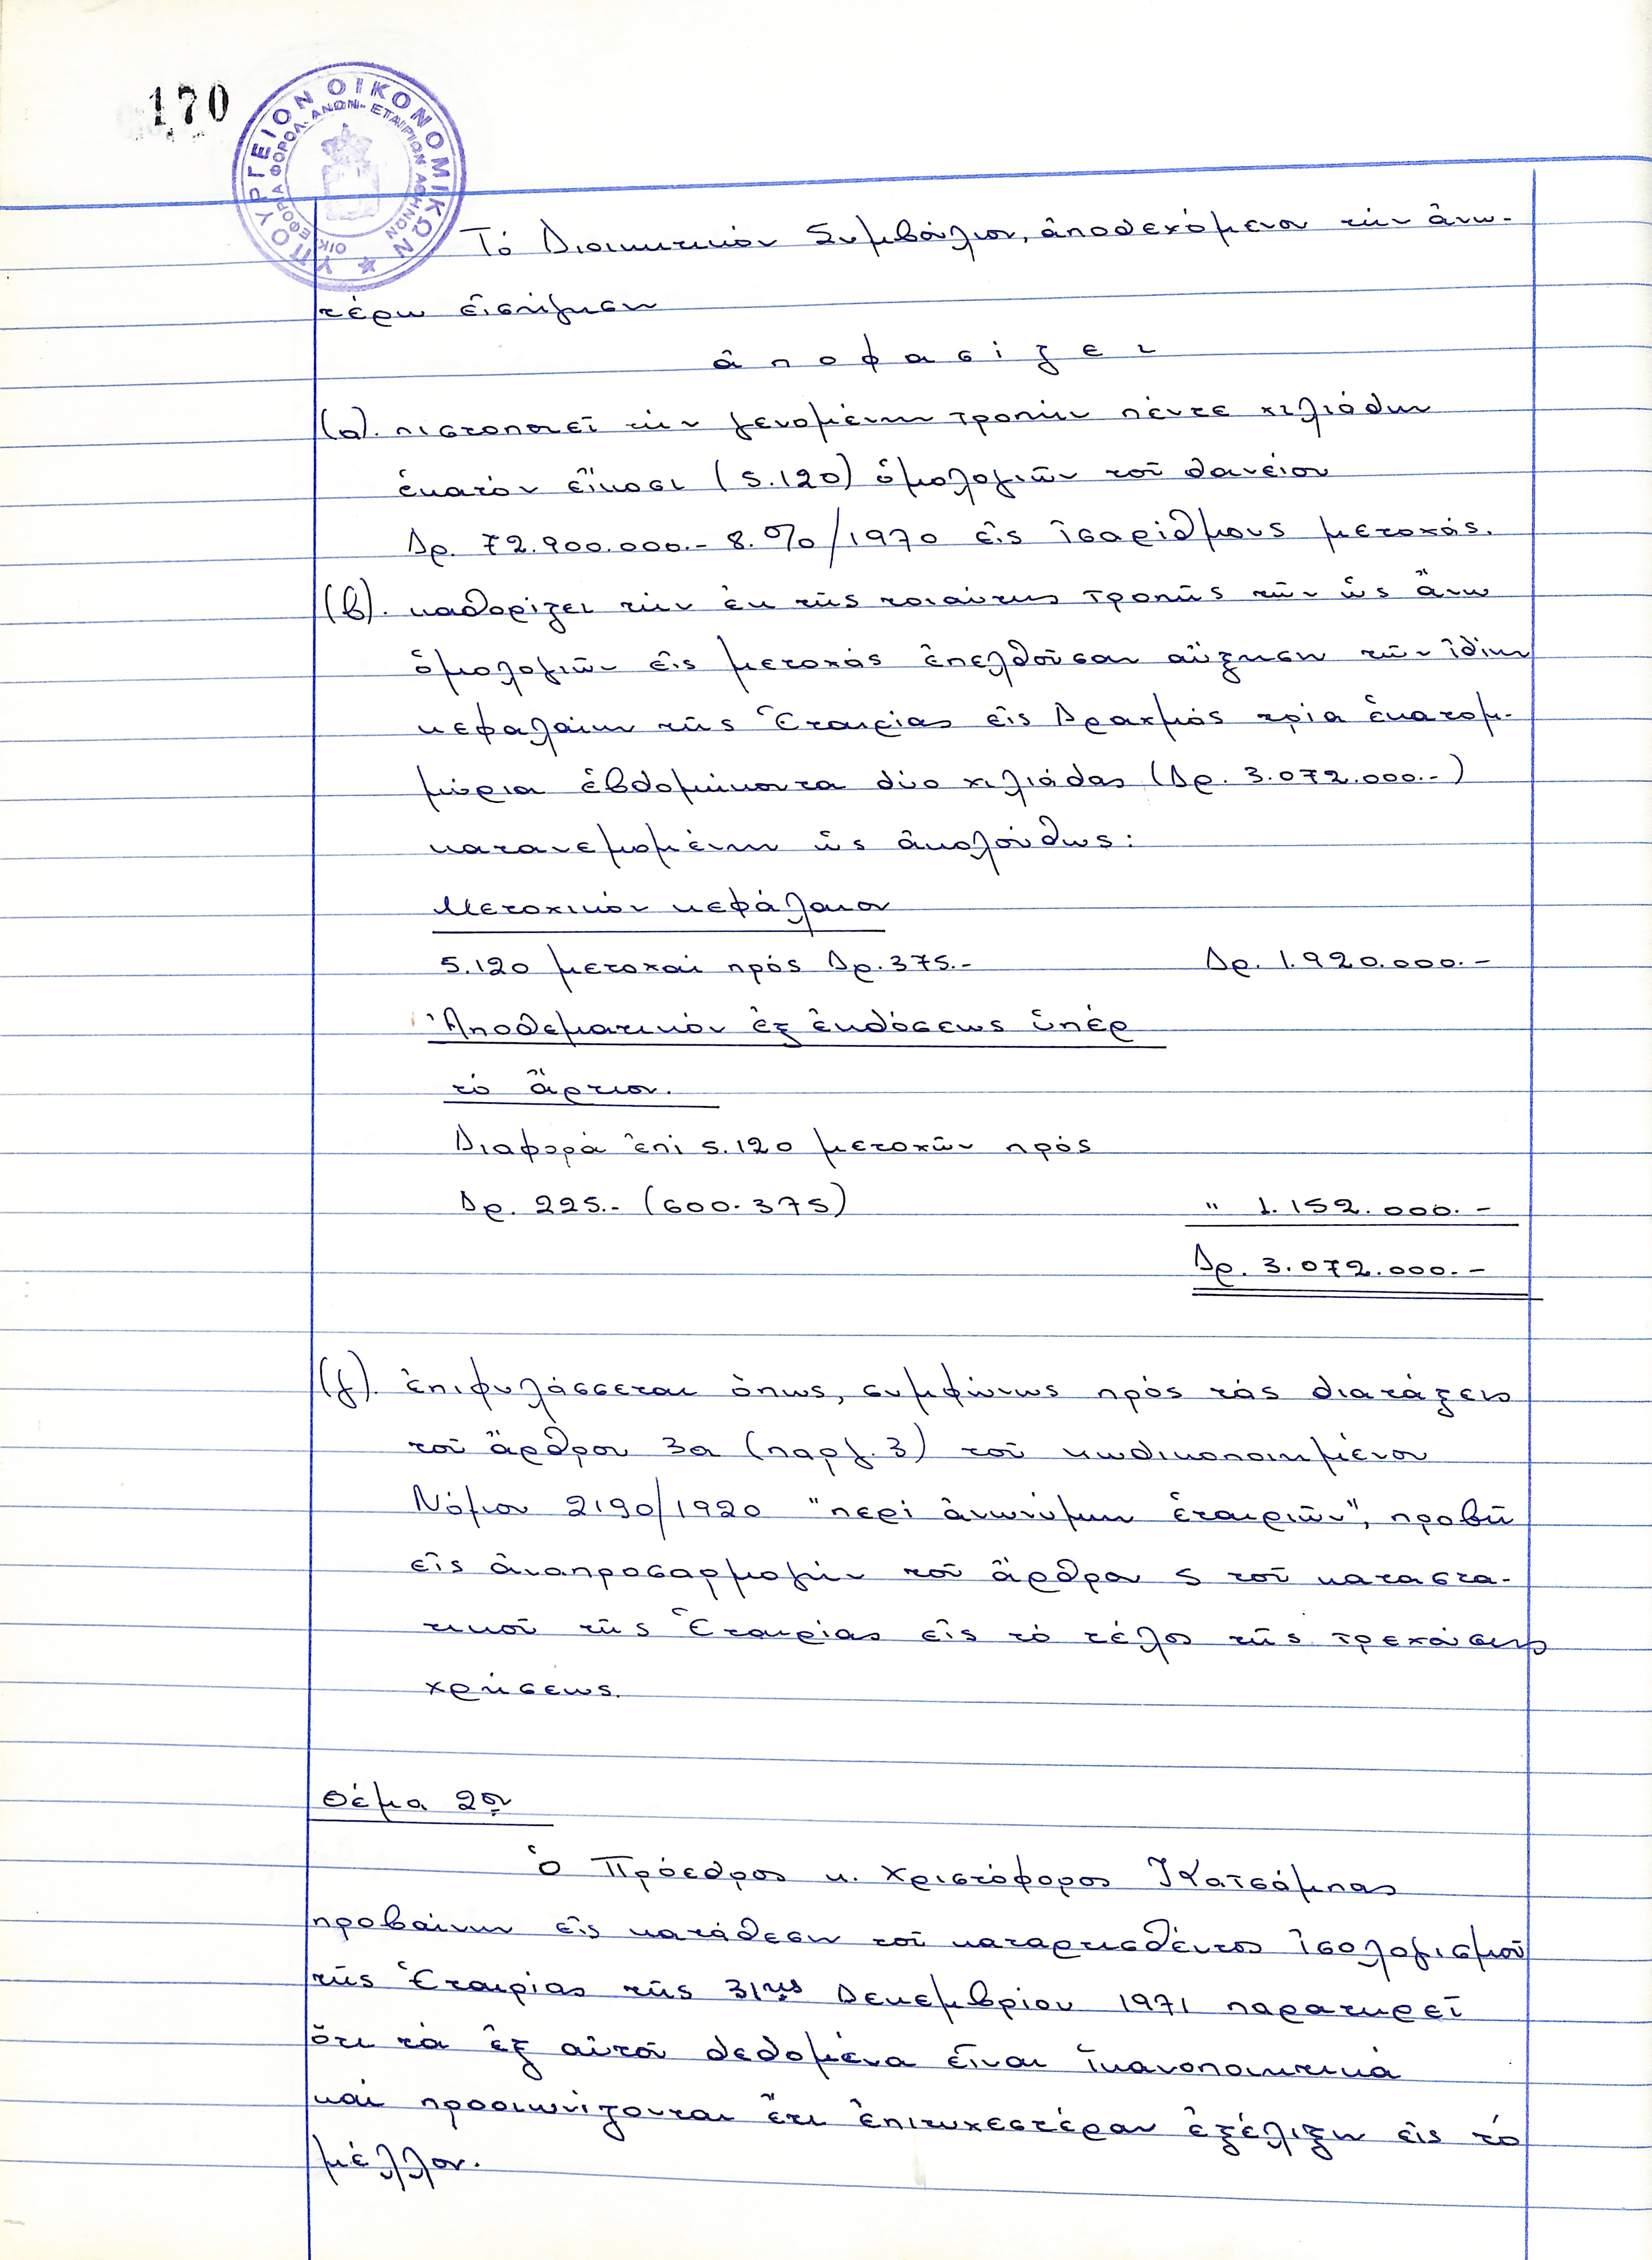 170
ΥΠΟΥΡΓΕΙΟΝ ΟΙΚΟΝΟΜΙΚΩΝ
ΟΙΚ. ΕΦΟΡΙΑ ΦΟΡΟΛ. ΑΝΩΝ. ΕΤΑΙΡΙΩΝ ΑΘΗΝΩΝ
Τό Διοικητικόν Συμβούλιον, ἀποδεχόμενον τήν ἀνω-
τέρω εἰσήγησιν
ἀ π ο φ α σ ί ζ ε ι
(α). πιστοποιεῖ τήν γενομένην τροπήν πέντε χιλιάδων
ἑκατόν εἴκοσι (5.120) ὁμολογιῶν τοῦ δανείου
Δρ. 72.900.000.- 8.%/1970 εἰς ἰσαρίθμους μετοχάς.
(β). καθορίζει τήν ἐκ τῆς τοιαύτης τροπῆς τῶν ὡς ἄνω
ὁμολογιῶν εἰς μετοχάς ἐπελθοῦσαν αὔξησιν τῶν ἰδίων
κεφαλαίων τῆς Ἑταιρίας εἰς Δραχμάς τρία ἑκατομ-
μύρια ἑβδομήκοντα δύο χιλιάδας (Δρ. 3.072.000.-)
κατανεμομένην ὡς ἀκολούθως:
Μετοχικόν κεφάλαιον
5.120 μετοχαί πρός Δρ.375.- Δρ. 1.920.000.-
Ἀποθεματικόν ἐξ ἐκδόσεως ὑπέρ
τό ἄρτιον.
Διαφορά ἐπί 5.120 μετοχῶν πρός
Δρ. 225.- (600-375) " 1.152.000.-
Δρ. 3.072.000.-
(γ). ἐπιφυλάσσεται ὅπως, συμφώνως πρός τάς διατάξεις
τοῦ ἄρθρου 3α (παργ. 3) τοῦ κωδικοποιημένου
Νόμου 2190/1920 "περί ἀνωνύμων ἑταιριῶν", προβῇ
εἰς ἀναπροσαρμογήν τοῦ ἄρθρου 5 τοῦ καταστα-
τικοῦ τῆς Ἑταιρίας εἰς τό τέλος τῆς τρεχούσης
χρήσεως.
Θέμα 2ον
Ὁ Πρόεδρος κ. Χριστόφορος Κατσάμπας
προβαίνων εἰς κατάθεσιν τοῦ καταρτισθέντος ἰσολογισμοῦ
τῆς Ἑταιρίας τῆς 31ης Δεκεμβρίου 1971 παρατηρεῖ
ὅτι τά ἐξ αὐτοῦ δεδομένα εἶναι ἱκανοποιητικά
καί προοιωνίζονται ἔτι ἐπιτυχεστέραν ἐξέλιξιν εἰς τό
μέλλον.